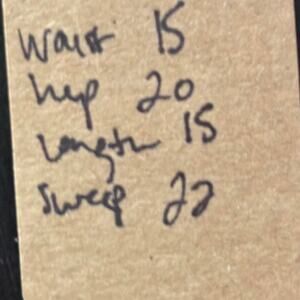 Waist 15
hip 20
Length 15
Sweep 22